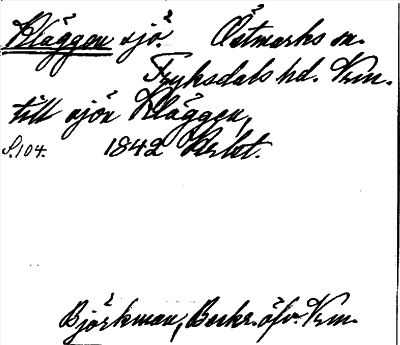 Kläggen sjö. Östmarks sn.
Fryksdals hd. Vrm.
till sjön Kläggen,
S. 104. 1842 Arbt.
Björkman, Beskr. öfv. Vrm.